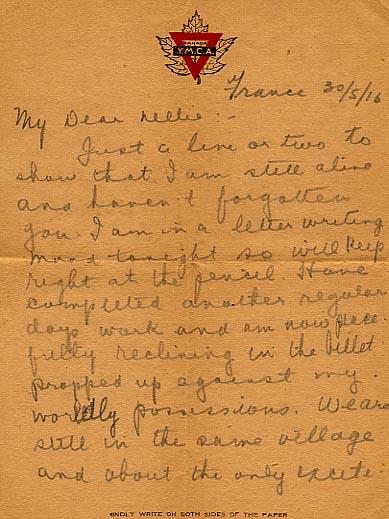 CANADA
Y.M.C.A.
France 30/5/16
My Dear Nellie:-
Just a line or two to
show that I am still alive
and haven't forgotten
you. I am in a letter writing
mood tonight so will keep
right at the pencil. Have
completed another regular
days work and am now peace-
fully reclining in the billet
propped up against my
worldly possessions. We are
still in the same village
and about the only excite-
KINDLY WRITE ON BOTH SIDES OF THE PAPER